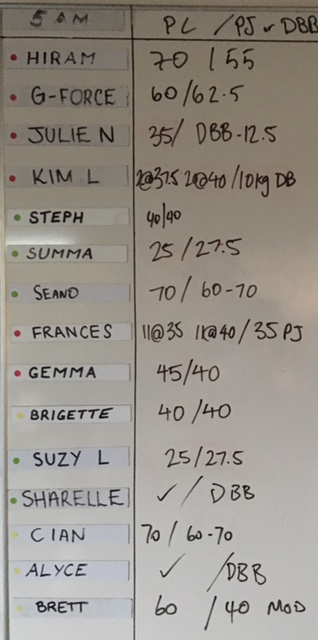 5 AM PL / PJ or DBB
HIRAM 70 / 55
G-FORCE 60/62.5
JULIE N 35/ DBB-12.5
KIM L 2@37.5 2@40 /10kg DB
STEPH 40/40
SUMMA 25/27.5
SEANO 70/ 60-70
FRANCES 11@35 11@40/ 35 PJ
GEMMA 45/40
BRIGETTE 40/40
SUZY L 25/27.5
SHARELLE ✓ / DBB
CIAN 70/ 60-70
ALYCE ✓ /DBB
BRETT 60 / 40 MOD